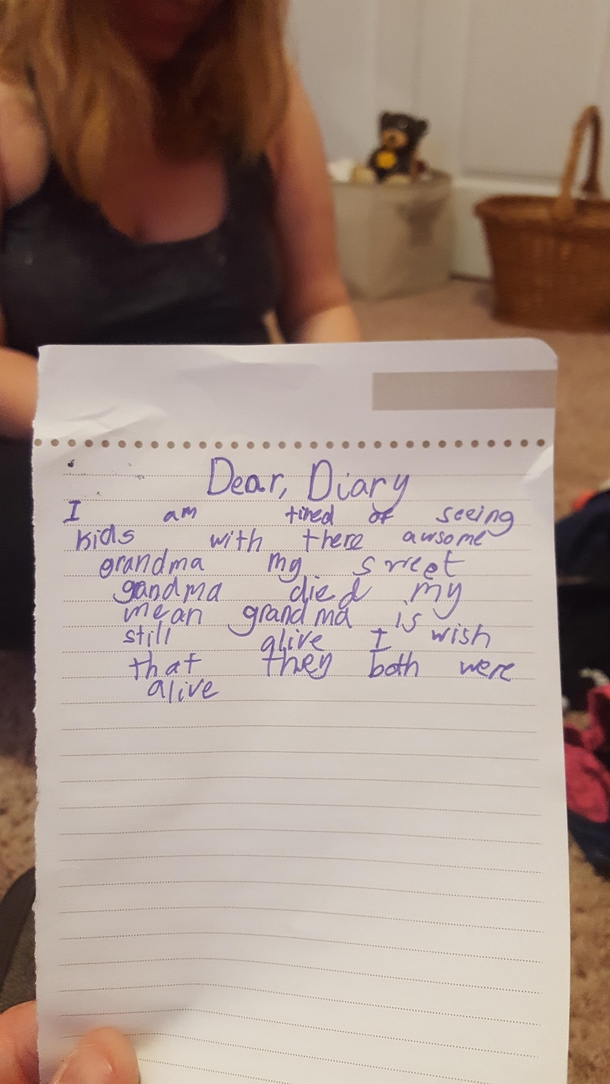 Dear, Diary
I am tired of seeing
kids with there awsome
grandma my sweet
gandma died my
mean grandma is
still alive I wish
that they both were
alive